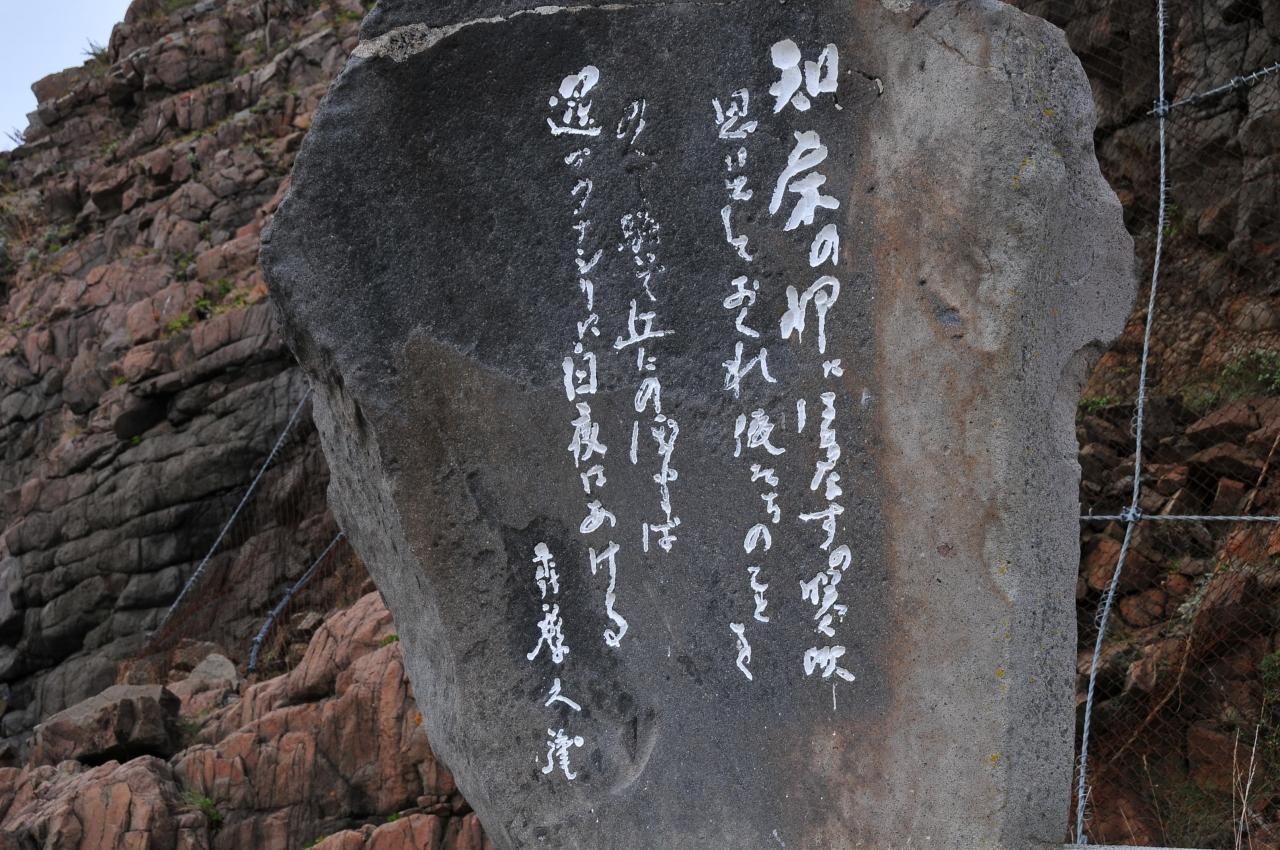 知床の岬に はまなすの咲く頃
思い出しておくれ 俺たちのことを
飲んで騒いで 丘にのぼれば
遥かクナシリに 白夜はあける
森繁久彌